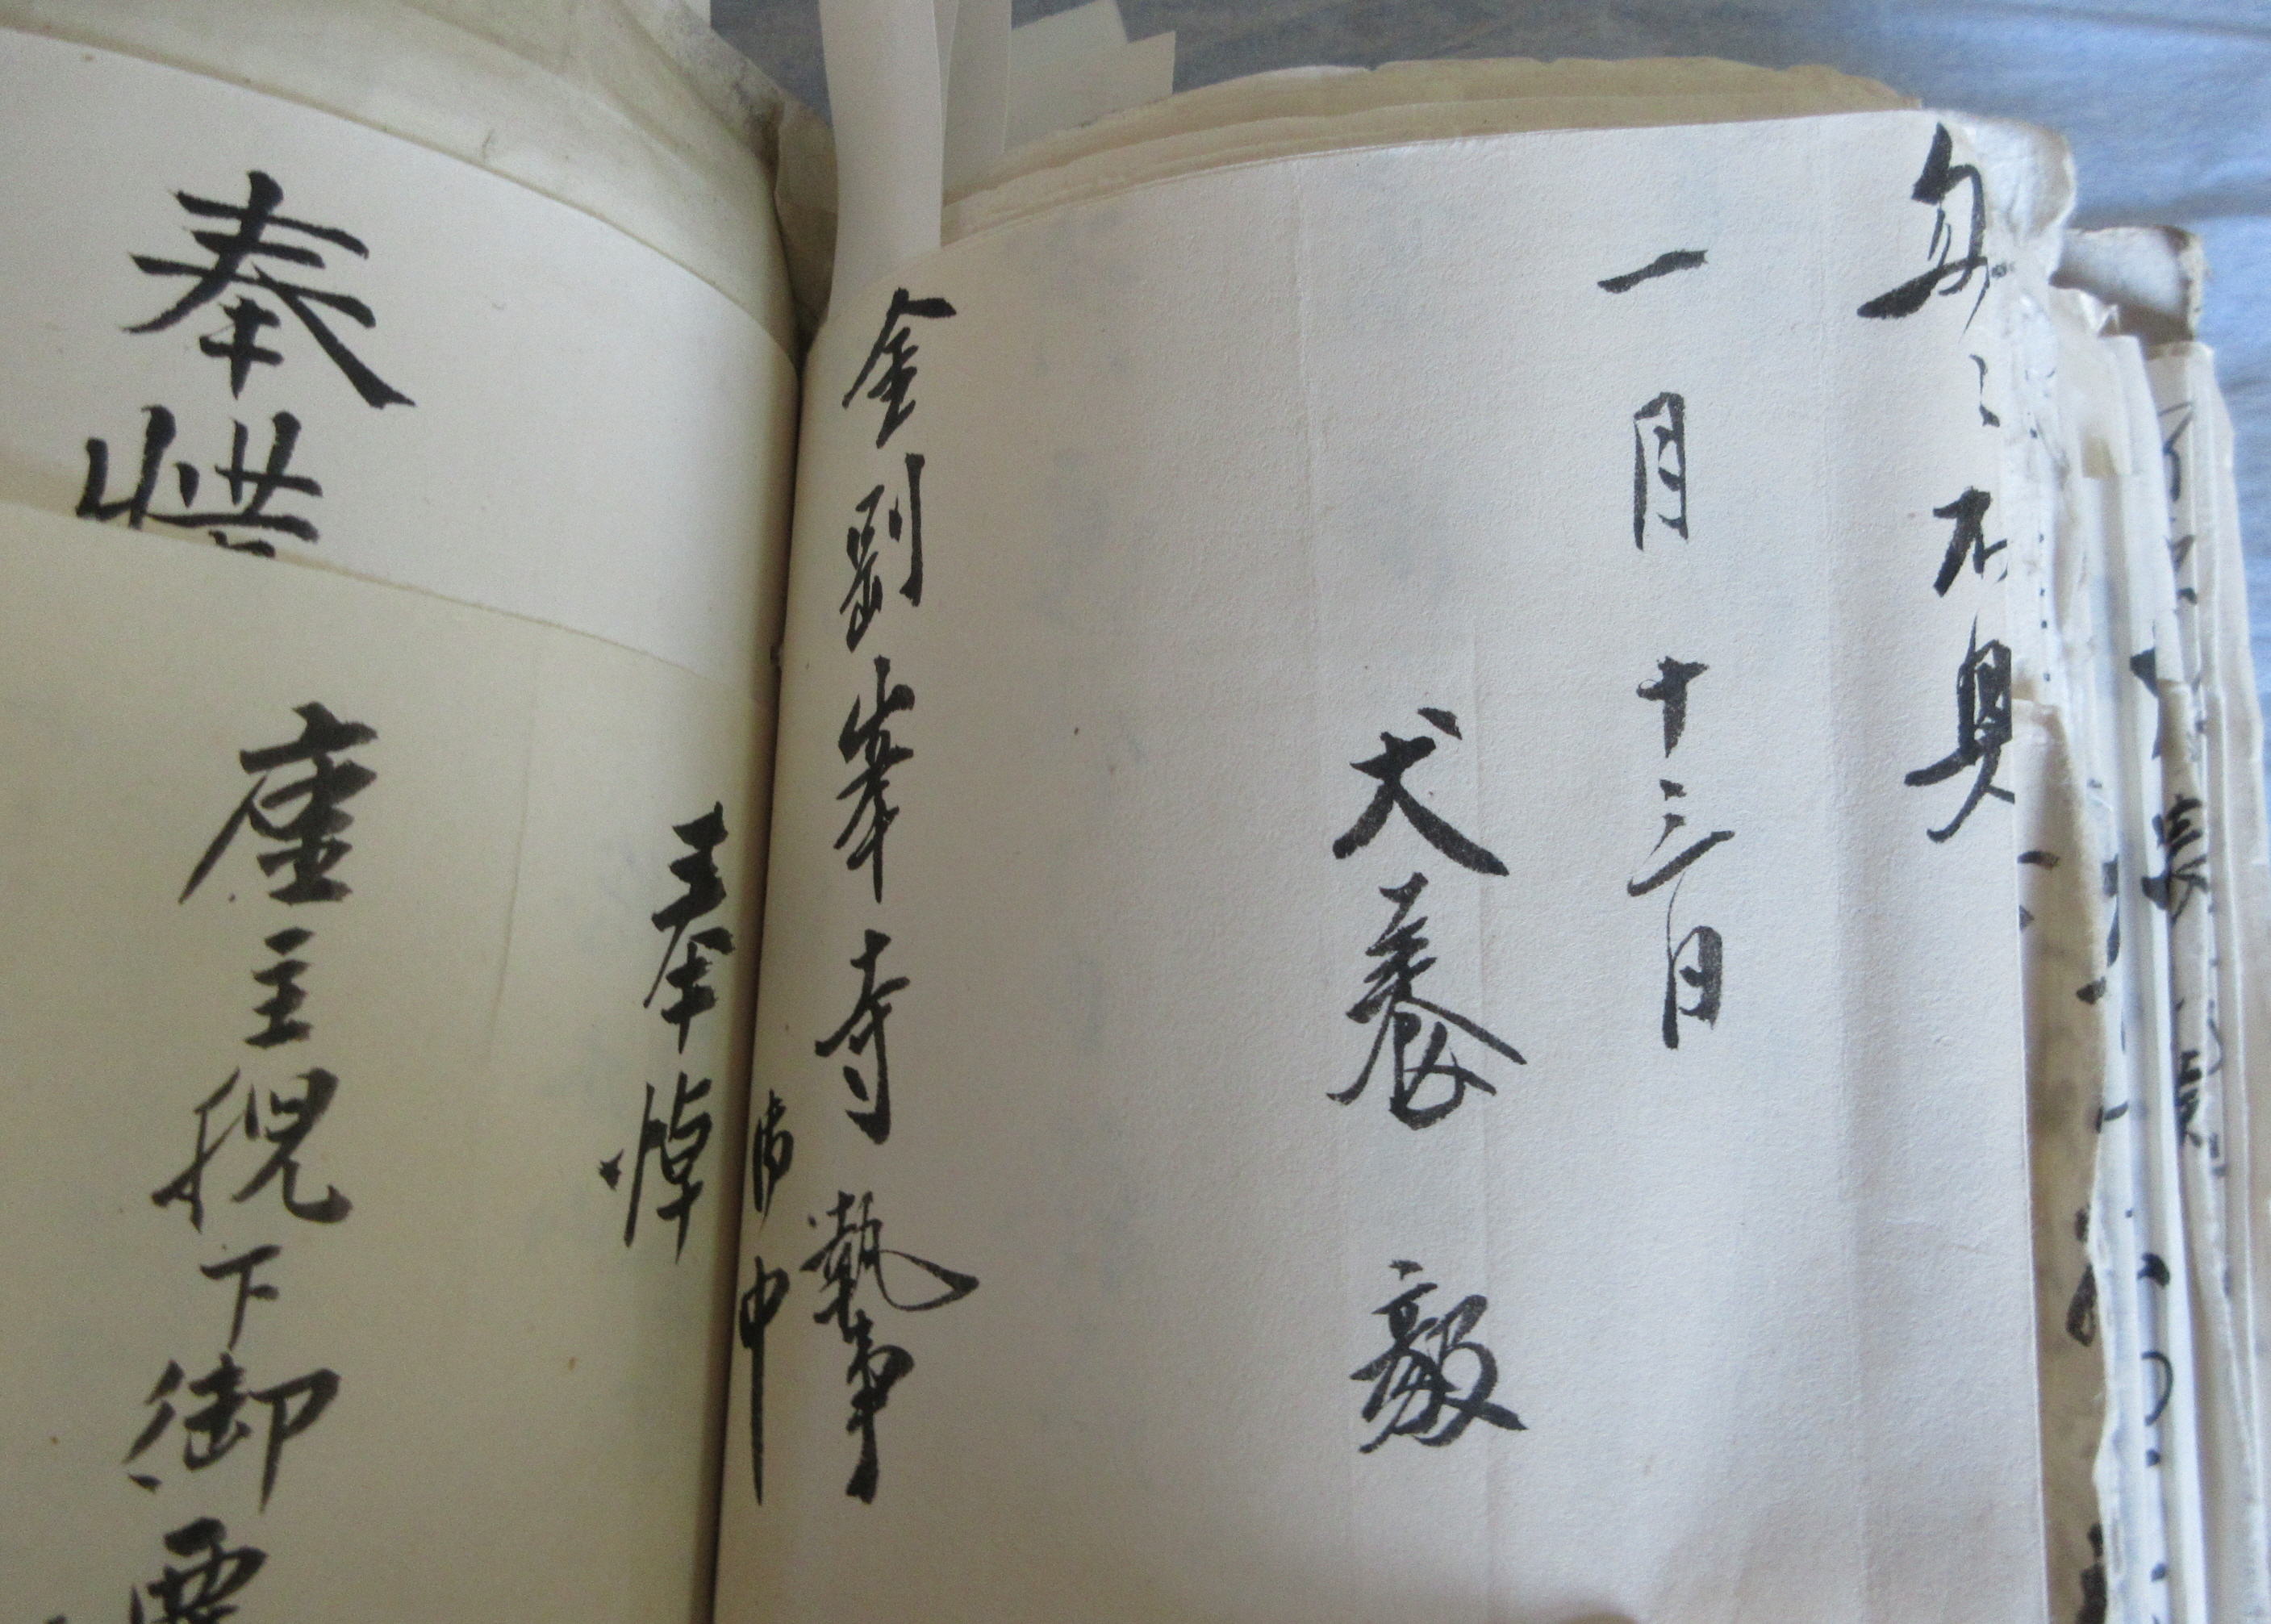 匆々不具
一月十三日
犬養 毅
金剛峯寺執事
中
奉悼
座主猊下御霊
奉